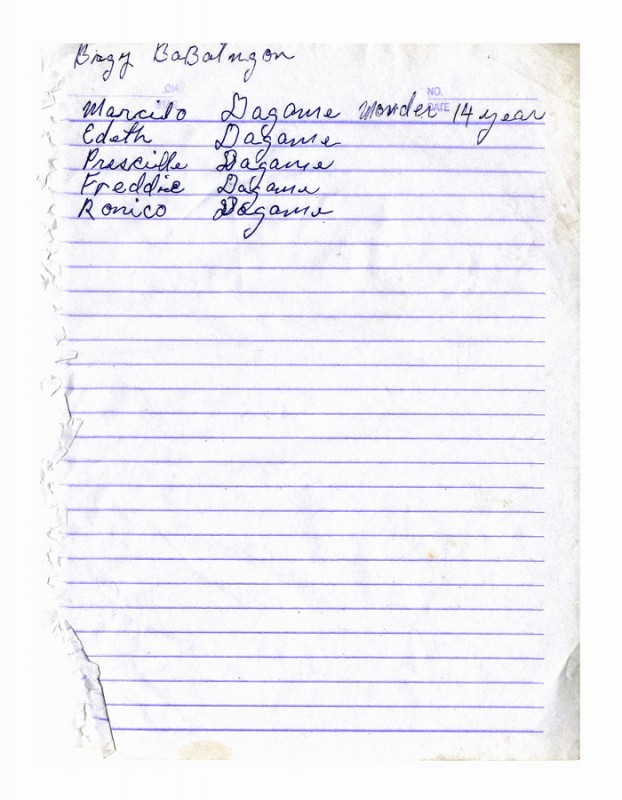 Brgy BaBatngon
NO.
DATE
Marcilo Dagame Wonder 14 year
Edeth Dagame
Prescille Dagame
Freddie Dagame
Ronico Dagame